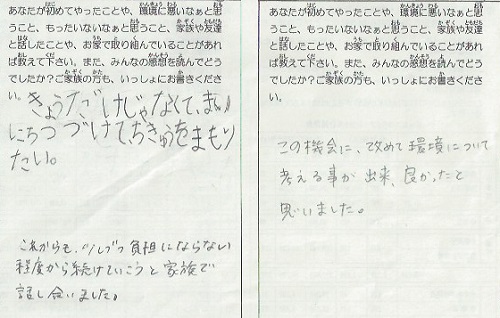 あなたが初めてやったことや、環境に悪いなぁと思
うこと、もったいないなぁと思うこと、家族や友達
と話したことや、お家で取り組んでいることがあれ
ば教えて下さい。また、みんなの感想を読んでどう
でしたか?ご家族の方も、いっしょにお書きくださ
い。
きょうだけじゃなくて、まい
にちつづけて、ちきゅうをまもり
たい。
これからも、少しづつ負担にならない
程度から続けていこうと家族で
話し合いました。
あなたが初めてやったことや、環境に悪いなぁと思
うこと、もったいないなぁと思うこと、家族や友達
と話したことや、お家で取り組んでいることがあれ
ば教えて下さい。また、みんなの感想を読んでどう
でしたか?ご家族の方も、いっしょにお書きくださ
い。
この機会に、改めて環境について
考える事が出来、良かったと
思いました。